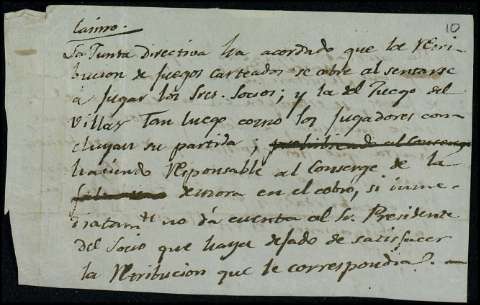 10
La Junta directiva ha acordado que la retri-
bucion de juegos carteados se cobre al sentarse
á jugar los Sres. Socios; y la del Juego del
Villar tan luego como los jugadores con-
cluyan su partida,
haciendo responsable al Conserge de la
demora en el cobro, si inme-
diatamte no dá cuenta al Sr. Presidente
del Socio que haya dejado de satisfacer
la retribucion que le correspondia.